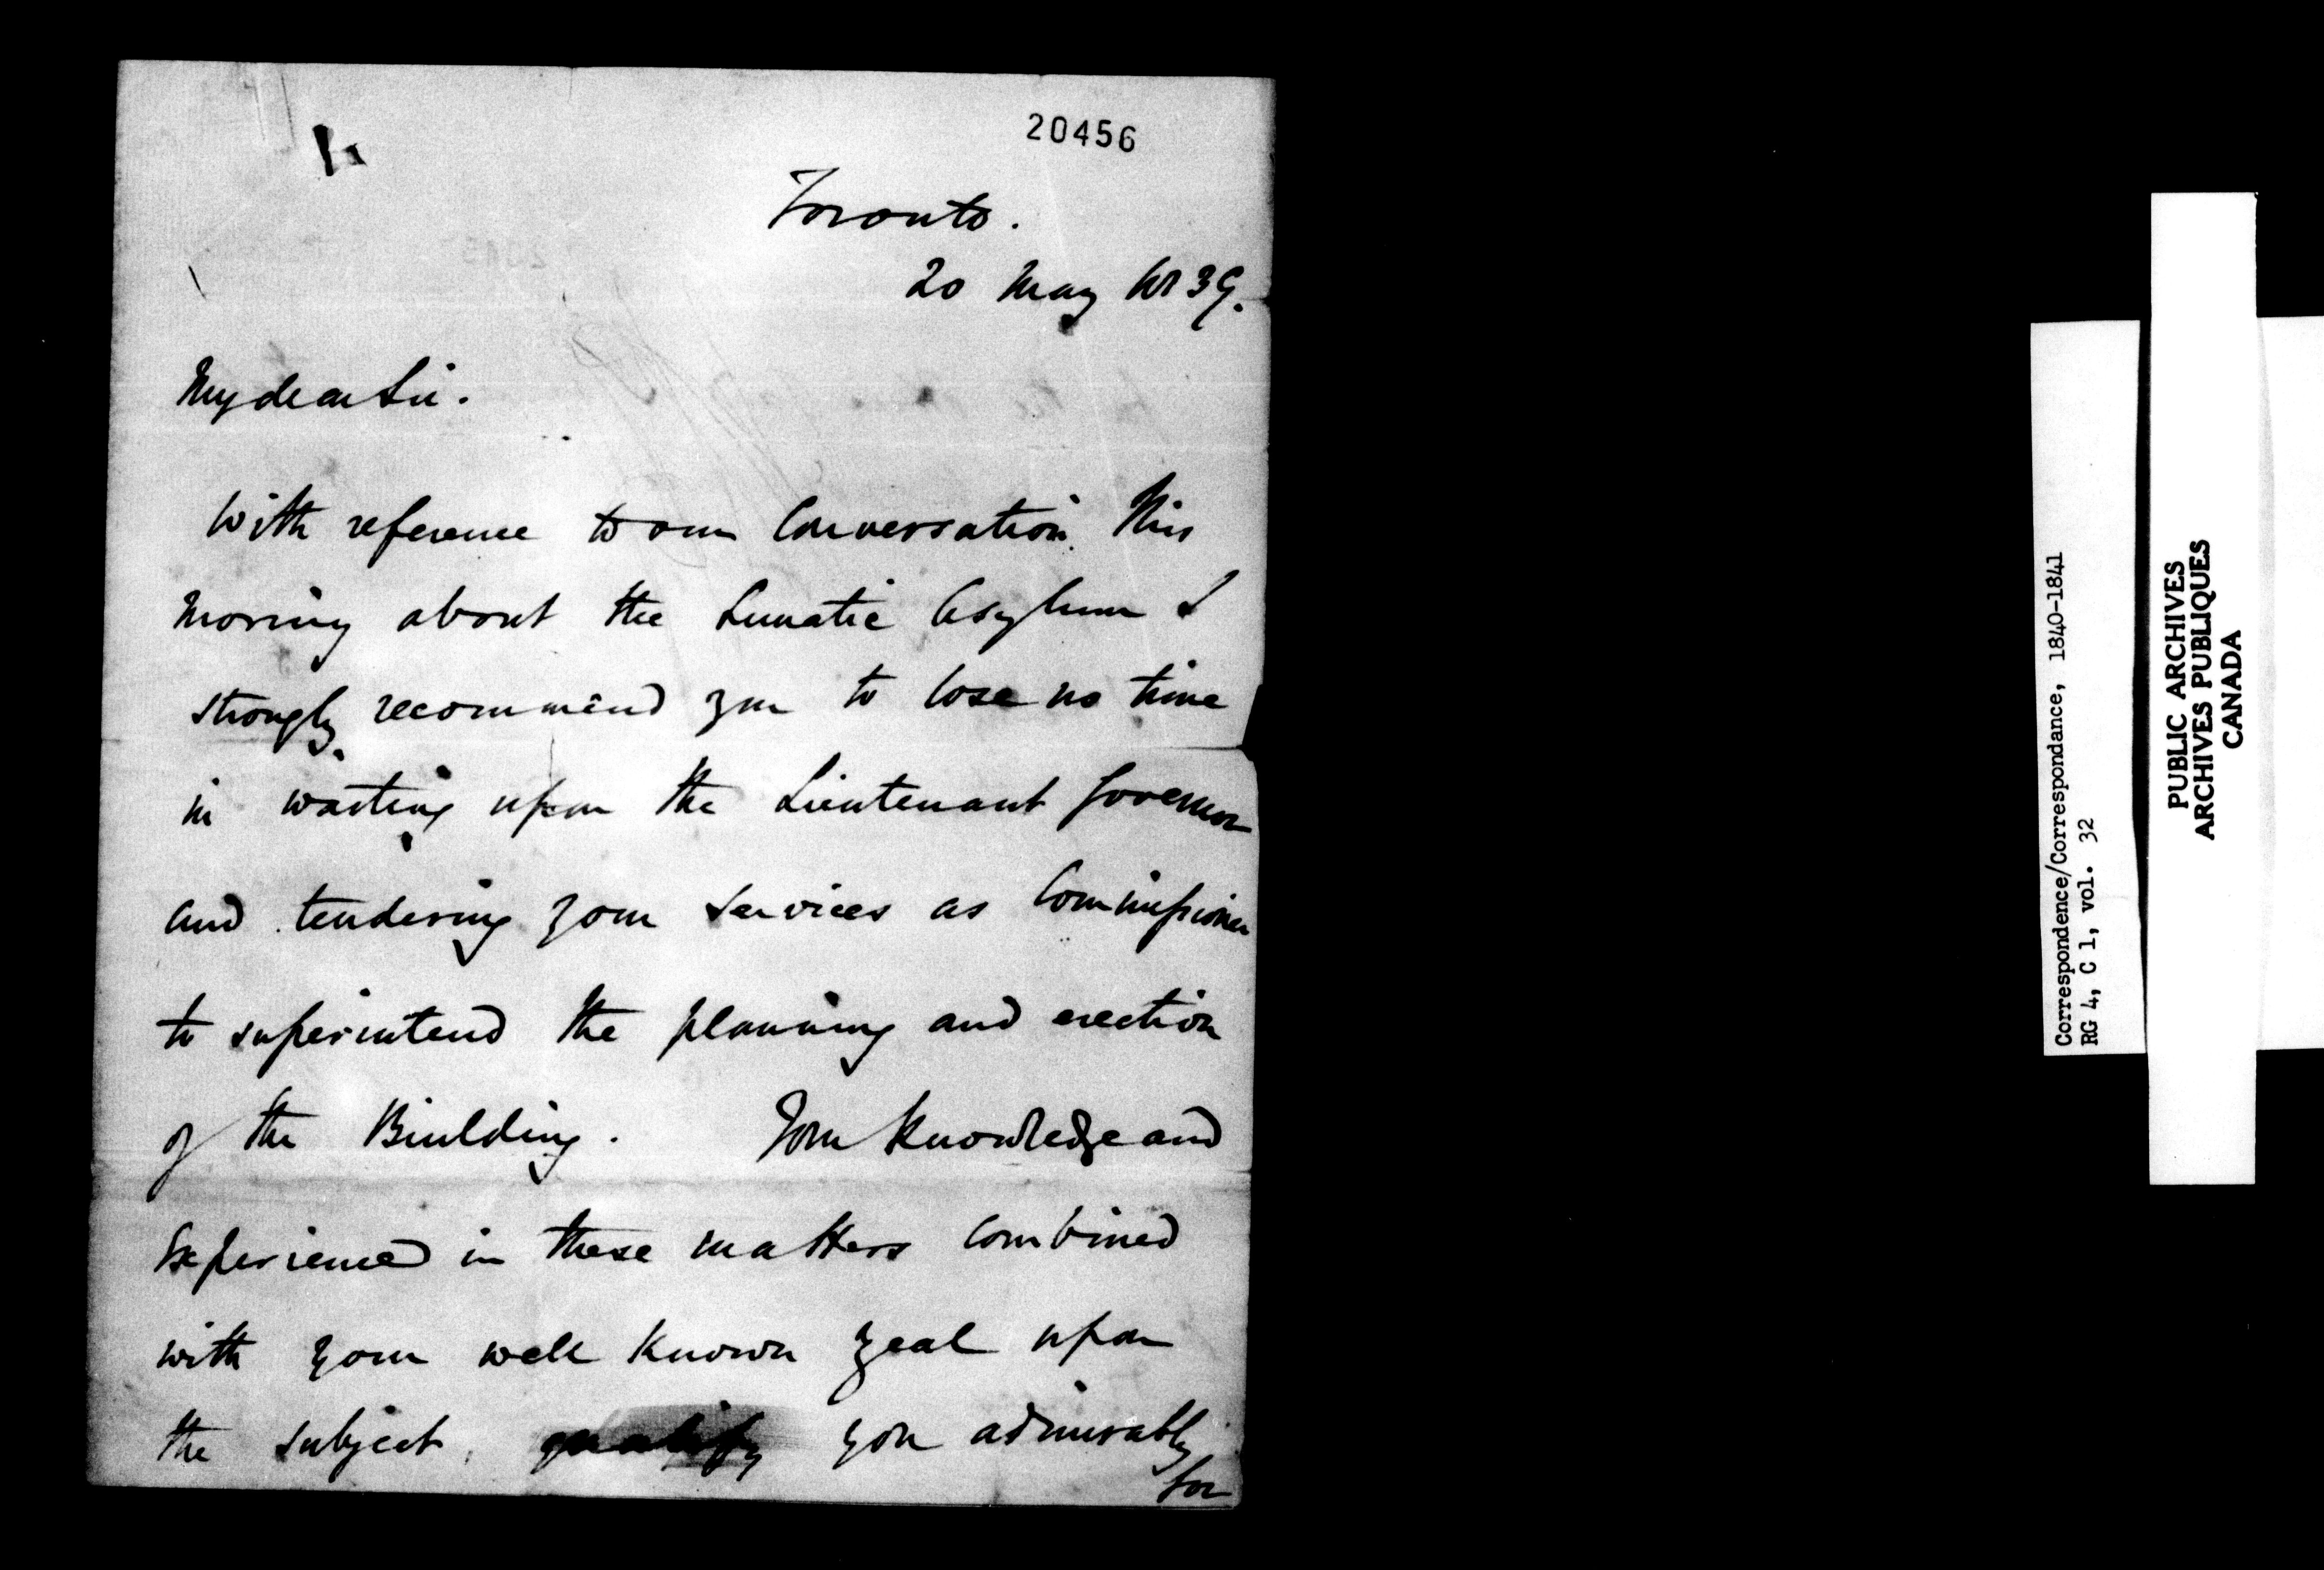 20456
Toronto.
20 May 1839.
My dear Sir.
With reference to our Conversation this
Morning about the Lunatic Asylum I
strongly recommend you to lose no time
in waiting upon the Lieutenant Governor
and tendering your services as Commissioner
to superintend the planning and erection
of the Building. Your Knowledge and
Experience in these matters combined
with your well known zeal upon
the subject, qualify you admirably
for
Correspondence/Correspondance, 1840-1841
RG 4, C 1, vol. 32
PUBLIC ARCHIVES
ARCHIVES PUBLIQUES
CANADA